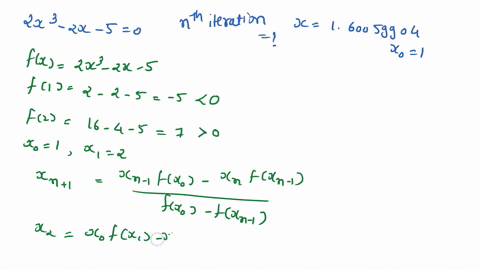 2x³-2x-5=0 nᵗʰ iteration =? x = 1.60059904
x₀=1
f(x) = 2x³-2x-5
f(1) = 2-2-5 = -5 <0
f(2) = 16-4-5 = 7 >0
x₀=1, x₁=2
xₙ₊₁ = (xₙ₋₁ f(x₀) - xₙ f(xₙ₋₁)) / (f(x₀) - f(xₙ₋₁))
x₂ = x₀ f(x₁) -